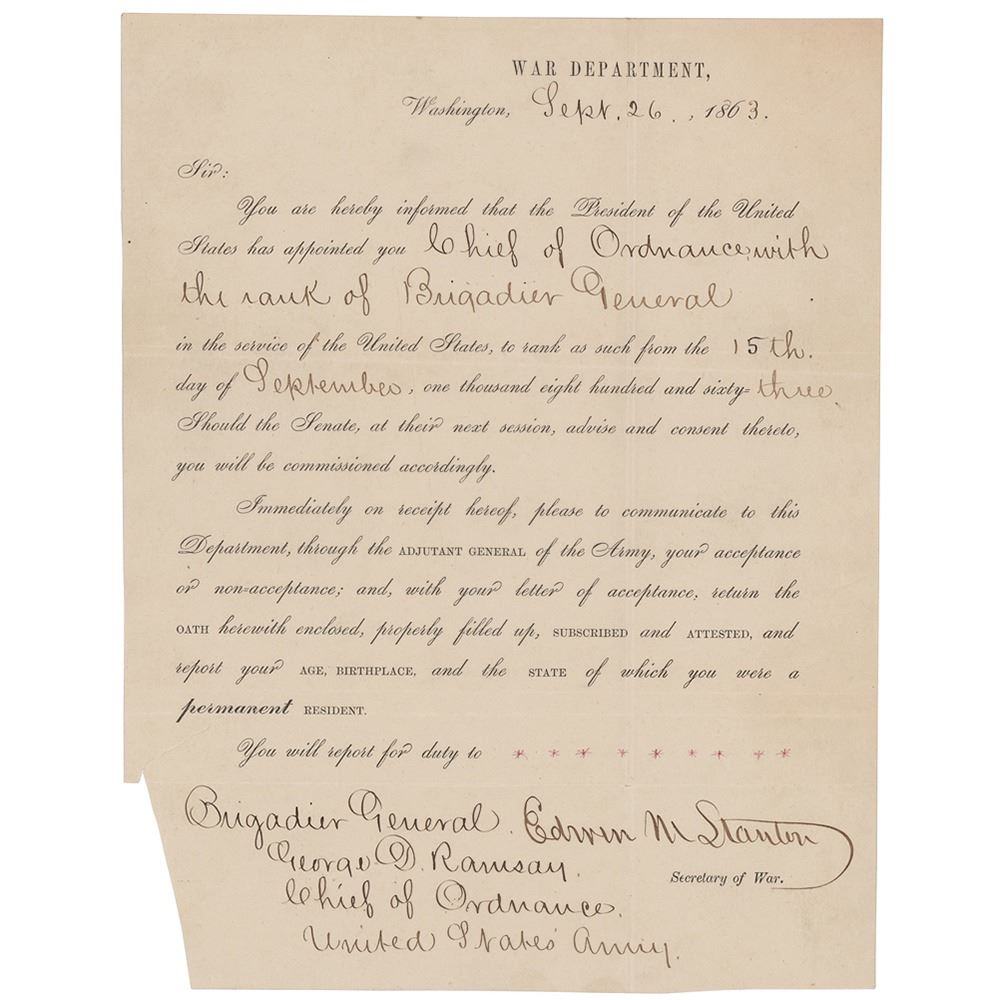 WAR DEPARTMENT,
Washington, Sept. 26., 1863.
Sir:
You are hereby informed that the President of the United
States has appointed you Chief of Ordnance, with
the rank of Brigadier General
in the service of the United States, to rank as such from the 15th.
day of September, one thousand eight hundred and sixty=three.
Should the Senate, at their next session, advise and consent thereto,
you will be commissioned accordingly.
Immediately on receipt hereof, please to communicate to this
Department, through the ADJUTANT GENERAL of the Army, your acceptance
or non=acceptance; and, with your letter of acceptance, return the
OATH herewith enclosed, properly filled up, SUBSCRIBED and ATTESTED, and
report your AGE, BIRTHPLACE, and the STATE of which you were a
permanent RESIDENT.
You will report for duty to * * * * * * * * *
Brigadier General. Edwin M Stanton
George D. Ramsay.
Secretary of War.
Chief of Ordnance.
United States Army.